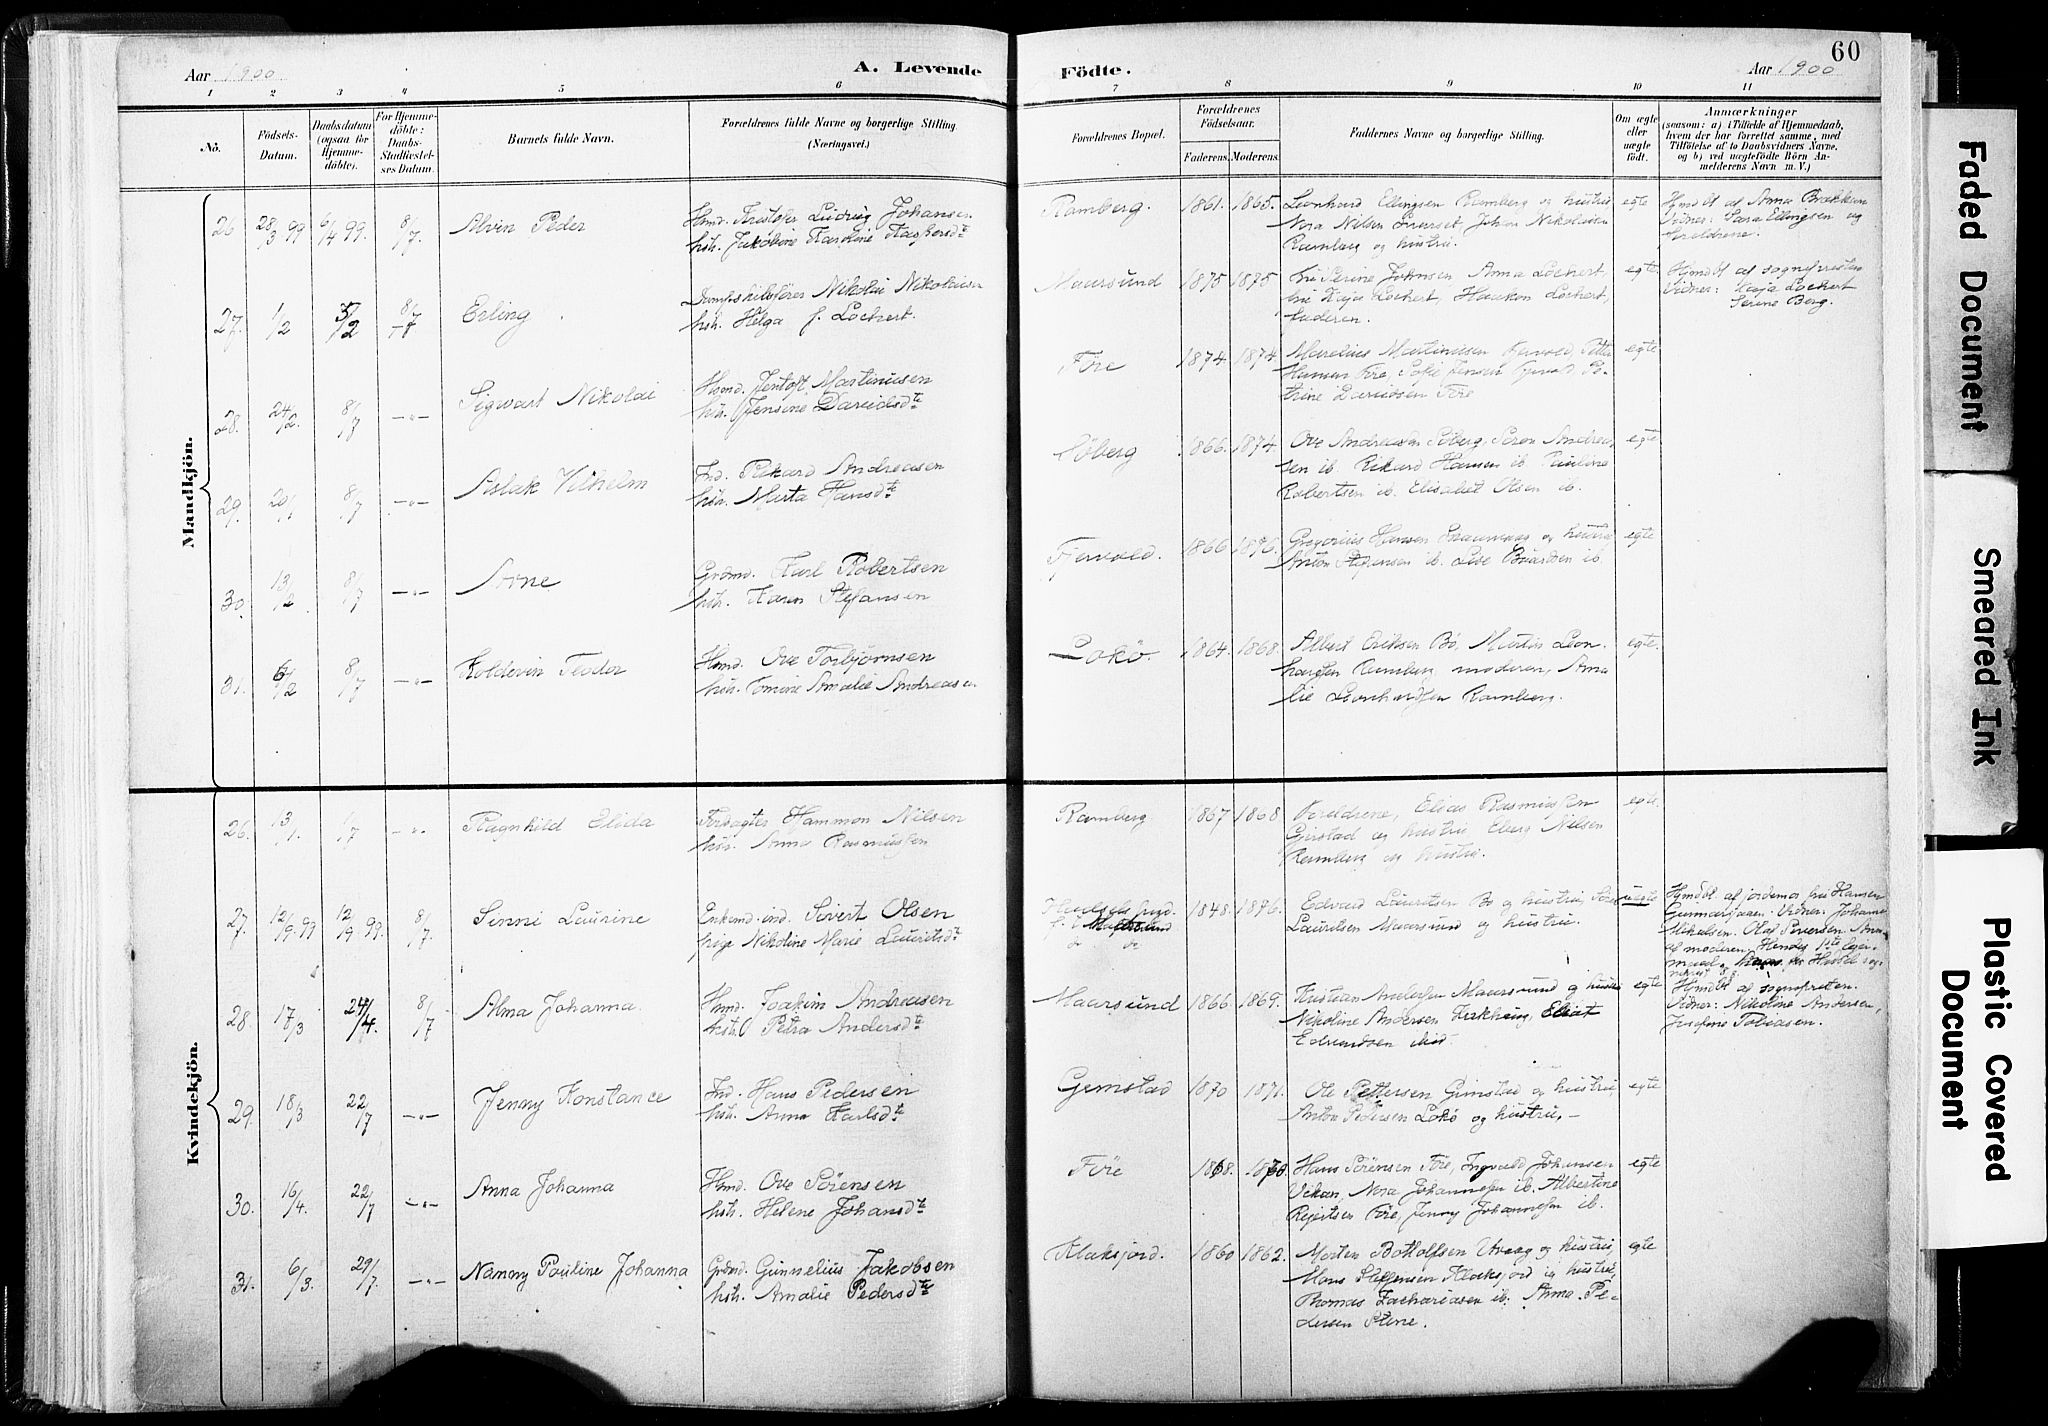 60
Aar 1900
A. Levende
Födte.
Aar 1900
1 2 3 4 5 6 7 8 9 10 11
No.
Födsels-
Datum.
Daabsdatum
(ogsaa for
Hjemme-
döbte).
For Hjemme-
döbte:
Daabs-
Stadfæstel-
ses Datum.
Barnets fulde Navn.
Forældrenes fulde Navne og borgerlige Stilling
(Næringsvei.)
Forældrenes Bopæl.
Forældrenes
Födselsaar.
Faderens. Moderens.
Faddernes Navne og borgerlige Stilling.
Om ægte
eller
uægte
födt.
Anmærkninger
(saasom: a) i Tilfælde af Hjemmedaab,
hvem der har forrettet samme, med
Tilföielse af to Daabsvidners Navne,
og b) ved uægtefödte Börn An-
melderens Navn m. V.)
Mandkjön.
26 28/3 99 6/4 99. 8/7. Alvin Peder
Hmd. Kristofer Ludvig Johansen
hstr. Jakobine Karoline Kaspersdte
Ramberg. 1861. 1865.
Leonhard Ellingsen Ramberg og hustru
Nora Nilsen, Johan Nikolaisen
Ramberg og hustru.
egte
Hmdbt af Anna Brækken
Vidner: Sara Ellingsen og
foreldrene.
27. 1/2 3/2 8/7 Erling.
Dampskibsfører Nikolai Nikolaisen
hstr. Helga f. Lockert.
Maarsund 1875 1875
Fru Serine Johnsen, Anna Lockert,
fru Kaja Lockert, Haakon Lockert,
faderen.
egte.
Hjmdbt af sognepresten
Vidner: Kaja Lockert
Serine Berg.
28. 24/2. 8/7 —"— Sigwart Nikolai
Hmd. Jentoft Martinusen
hstr. Jensine Davidsdte
Före 1874 1874
Marelius Martinusen Fjervold, Petter
Hansen Före, Sofie Jensen Fjervold, Pe-
trine Davidsen Före
egte
29. 20/1 8/7 —"— Aslak Vilhelm
Ind. Rikard Andreasen
hstr. Marta Hansdte
Söberg 1866. 1874.
Ove Andreassen Söberg, Sören Andrea-
sen ib. Rikard Hansen ib. Pauline
Robertsen ib. Elisabet Olsen ib.
egte
30. 13/2 8/7 —"— Arne
Grdmd. Karl Robertsen
hstr. Karen Stefansen
Fjervold. 1866 1876.
Gregorius Hansen Straumvaag og hustru
Anton Stefansen ib. Lise ib.
egte
31. 6/2 8/7 —"— Koldevin Teodor
Hmd. Ove Torbjörnsen
hstr. Tomine Amalie Andreasen
Lokö. 1864. 1868.
Albert Eriksen Bö, Martin Leon-
hardsen Ramberg, moderen, Ama-
lie Leonhardsen Ramberg.
egte.
Kvindekjön.
26. 13/1. 1/7 —"— Ragnhild Elida
Forpagter Hammon Nilsen
hstr. Anna Rasmussen
Ramberg 1867 1868
Foreldrene, Elias Rasmussen
Gimstad og hustru, Eberg Nilsen
Ramberg og hustru.
egte.
27. 12/9. 99 12/9 99. 8/7. Sinni Laurine
Enkemd. ind. Sivert Olsen
pige Nikoline Marie Lauritsdte
1848. 1876.
Edvard Lauritsen Bö og hustru,
Lauritsen Maarsund og hustru.
uegte
Hjmdbt. af jordemor fru Hansen
Gunnarjoen. Vidner: Johanna
Mikelsen. Olas Sivertsen.
moderen. Hendes 1ste leier-
maal,
28. 17/3 24/4. 8/7 Alma Johanna.
Hmd. Joakim Andreasen
hstr. Petra Andersdte
Maarsund 1866. 1869.
Kristian Andersen Maarsund og hustru
Nikoline Andersen, Eliot
Edvardsen ibid.
egte
Hjmdbt af sognepresten.
Vidner: Nikoline Andersen,
Josefine Tobiasen.
29. 18/3 22/7 —"— Jenny Konstance
Ind. Hans Pedersen
hstr. Anna Karlsdte
Gimstad 1870 1871.
Ole Pettersen Gimstad og hustru,
Anton Pedersen Lokö og hustru,—
egte
30. 16/4. 22/7 —"— Anna Johanna
Hmd. Ove Sörensen
hstr. Helene Johansdte
Före 1868. 1870.
Hans Sörensen Före, Ingvald Johansen
Vikan, Nora Johannesen ib. Albertine
Rejertsen Före, Jenny Johannesen ib.
egte
31. 6/3. 29/7. —"— Nanny Pauline Johanna
Grdmd. Gunnelius Jakobsen
hstr. Amalie Pedersdte
Klaksjord. 1860 1862.
Morten Bottolfsen Utvaag og hustru,
Hans Steffensen Klaksjord og hustru,
Thomas Zachariasen ib. Anna Pe-
dersen Stene.
egte
Faded Document
Smeared Ink
Plastic Covered
Document